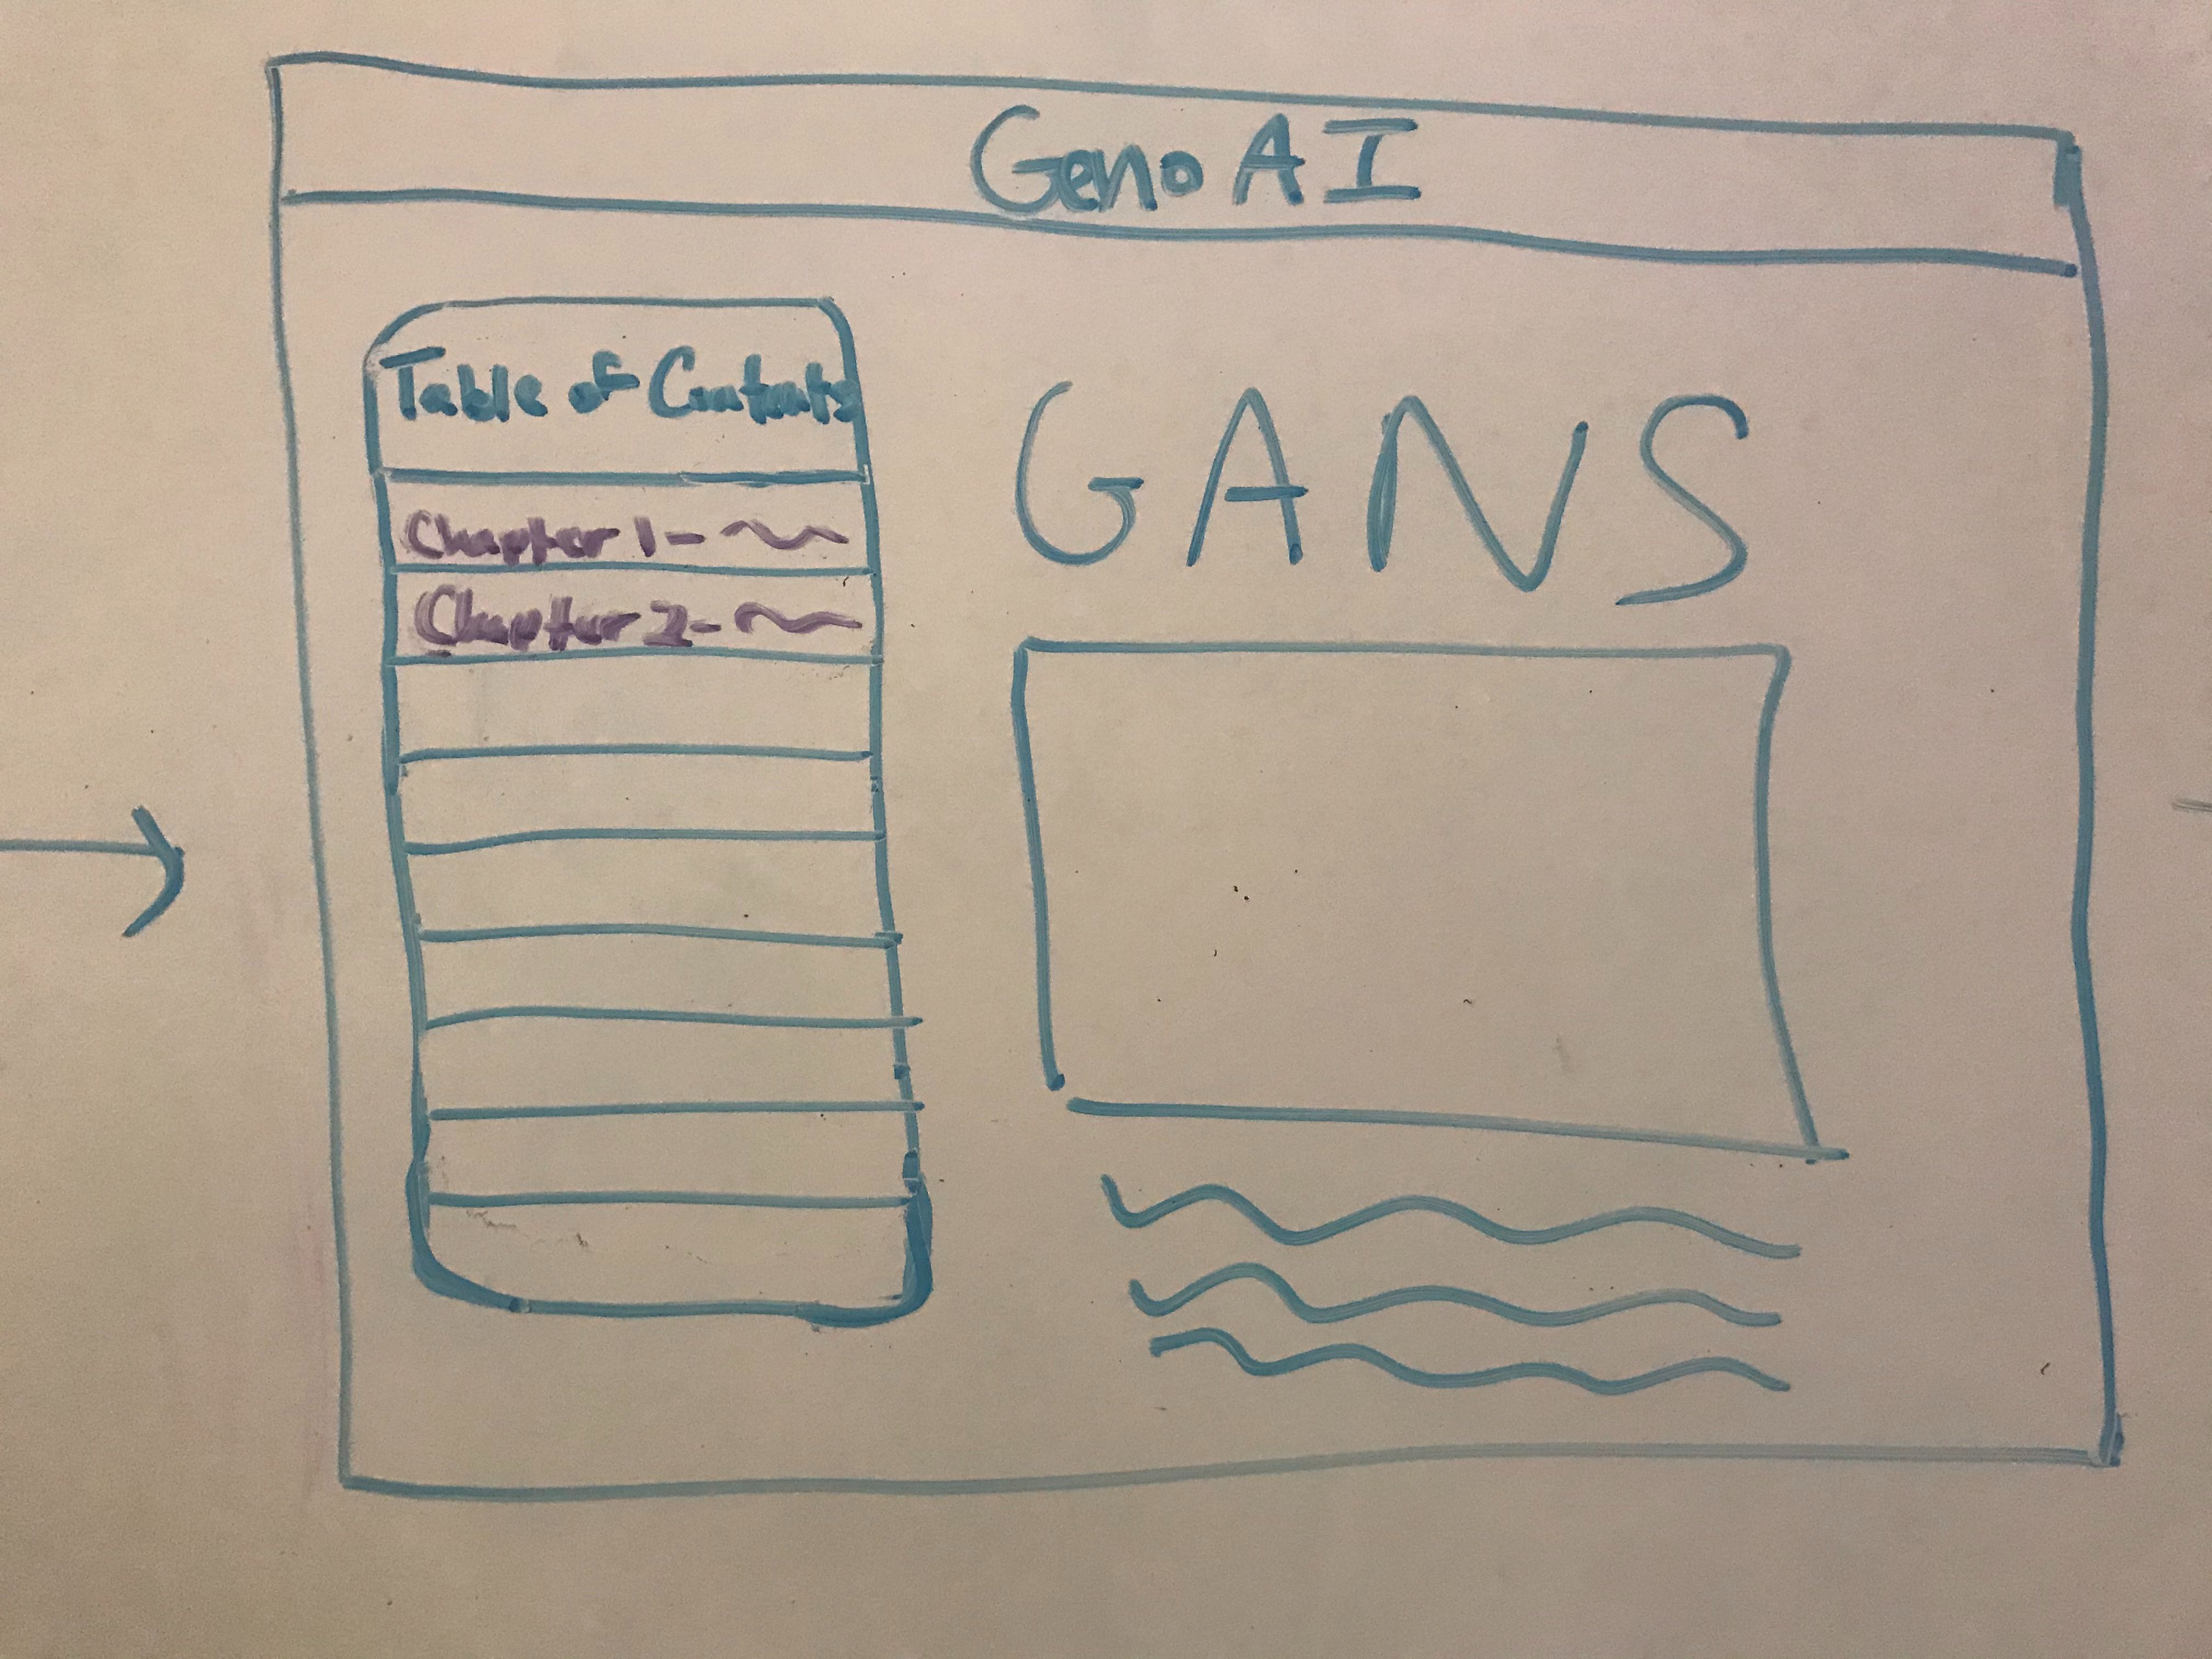 Geno AI
Table of Contents
Chapter 1-
Chapter 2-
GANS